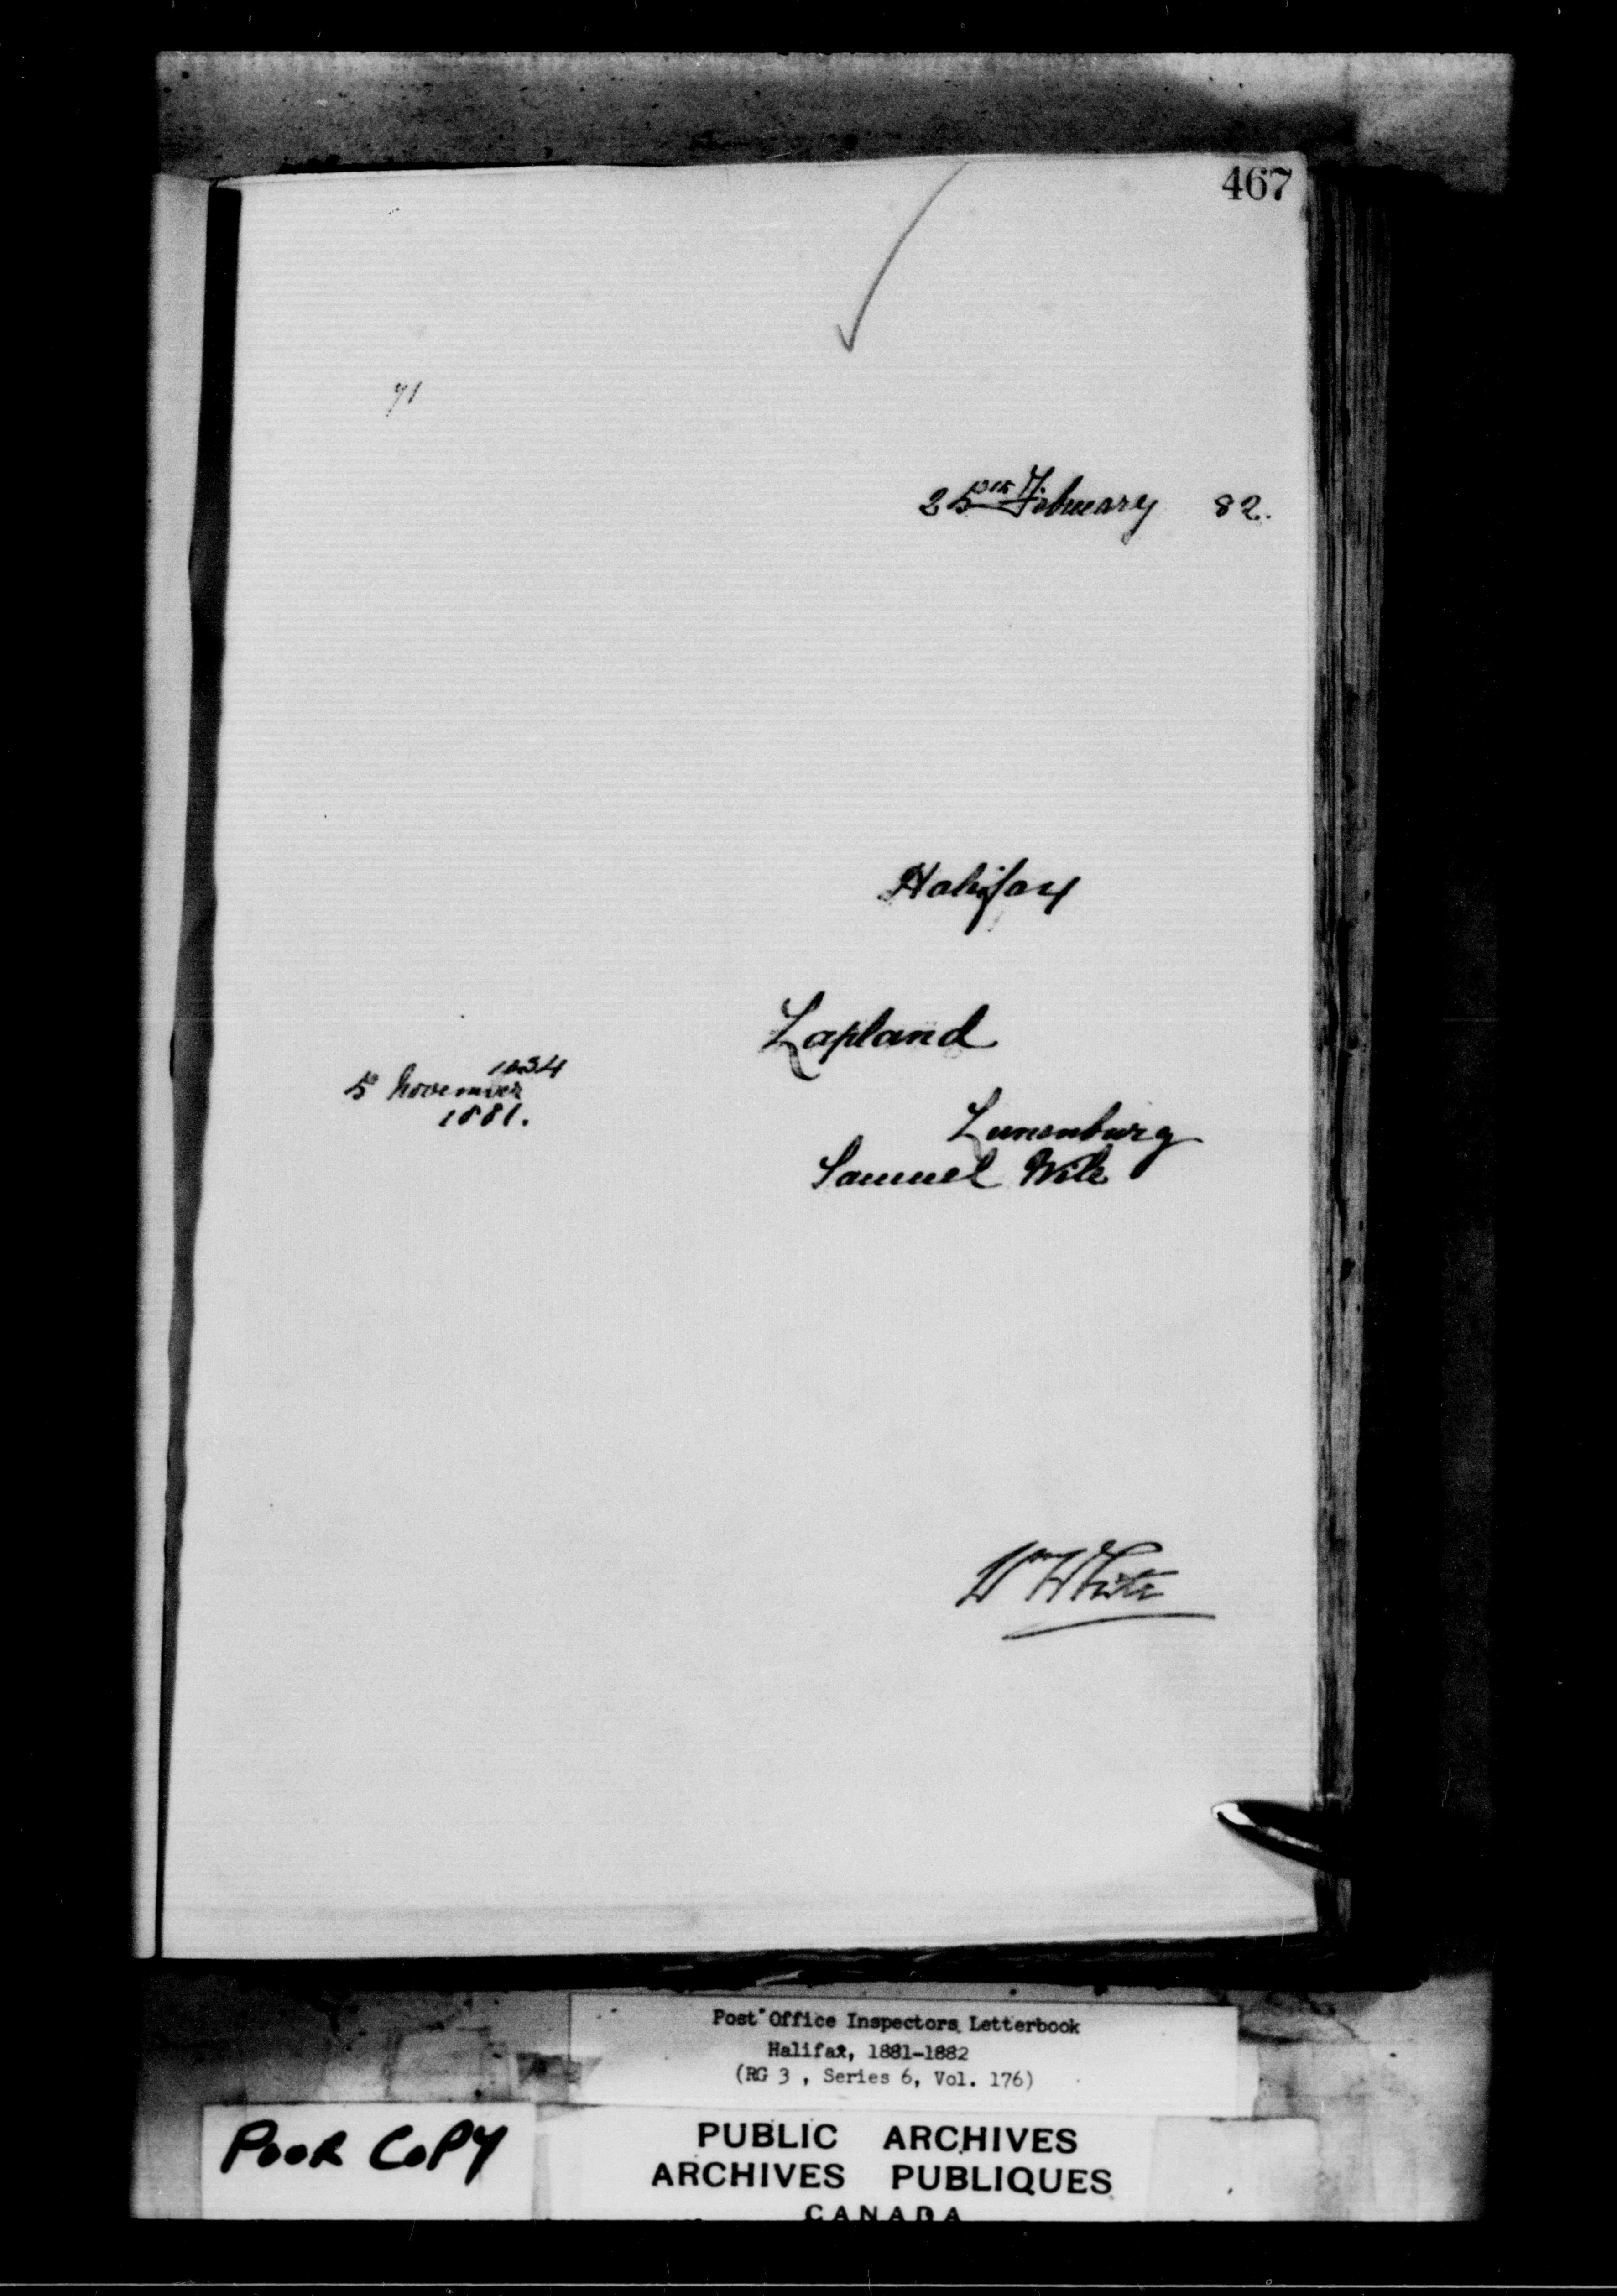 467
71
25th February 82.
Halifax
Lapland
1034
5 November
1881.
Lunenburg
Samuel Wile
Wm White
Post Office Inspectors Letterbook
Halifax, 1881-1882
(RG 3 , Series 6, Vol. 176)
POOR COPY
PUBLIC ARCHIVES
ARCHIVES PUBLIQUES
CANADA